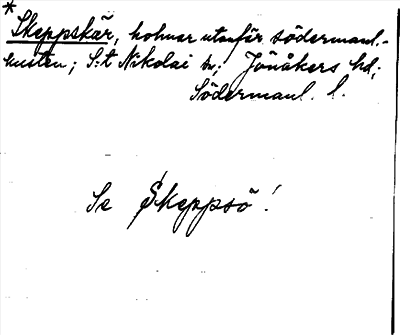 *
Skeppskär, holmar utanför södermanl.-
kusten; S:t Nikolai sn; Jönåkers hd,;
Södermanl. l.
Se Skeppsö!